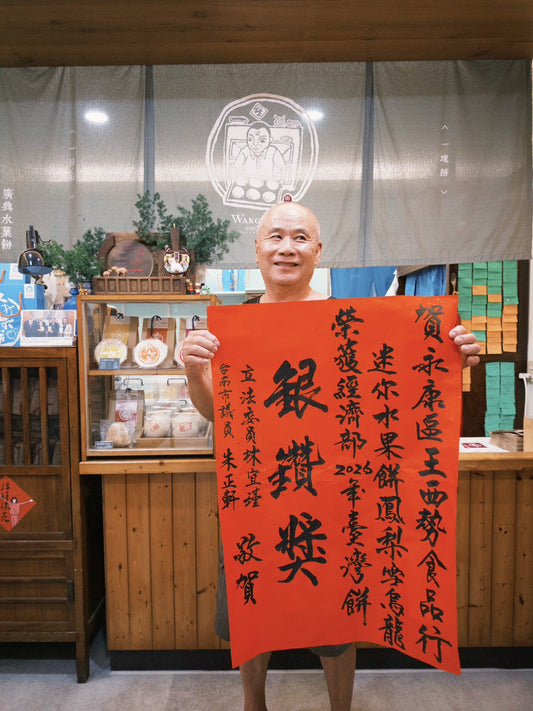 賀永康區王西勢食品行
迷你水果餅鳳梨雪烏龍
榮獲經濟部2026年臺灣餅
銀鑽獎
立法委員林宜瑾
台南市議員 朱正軒
敬賀
一塊餅
WANG
廣典水菓餅